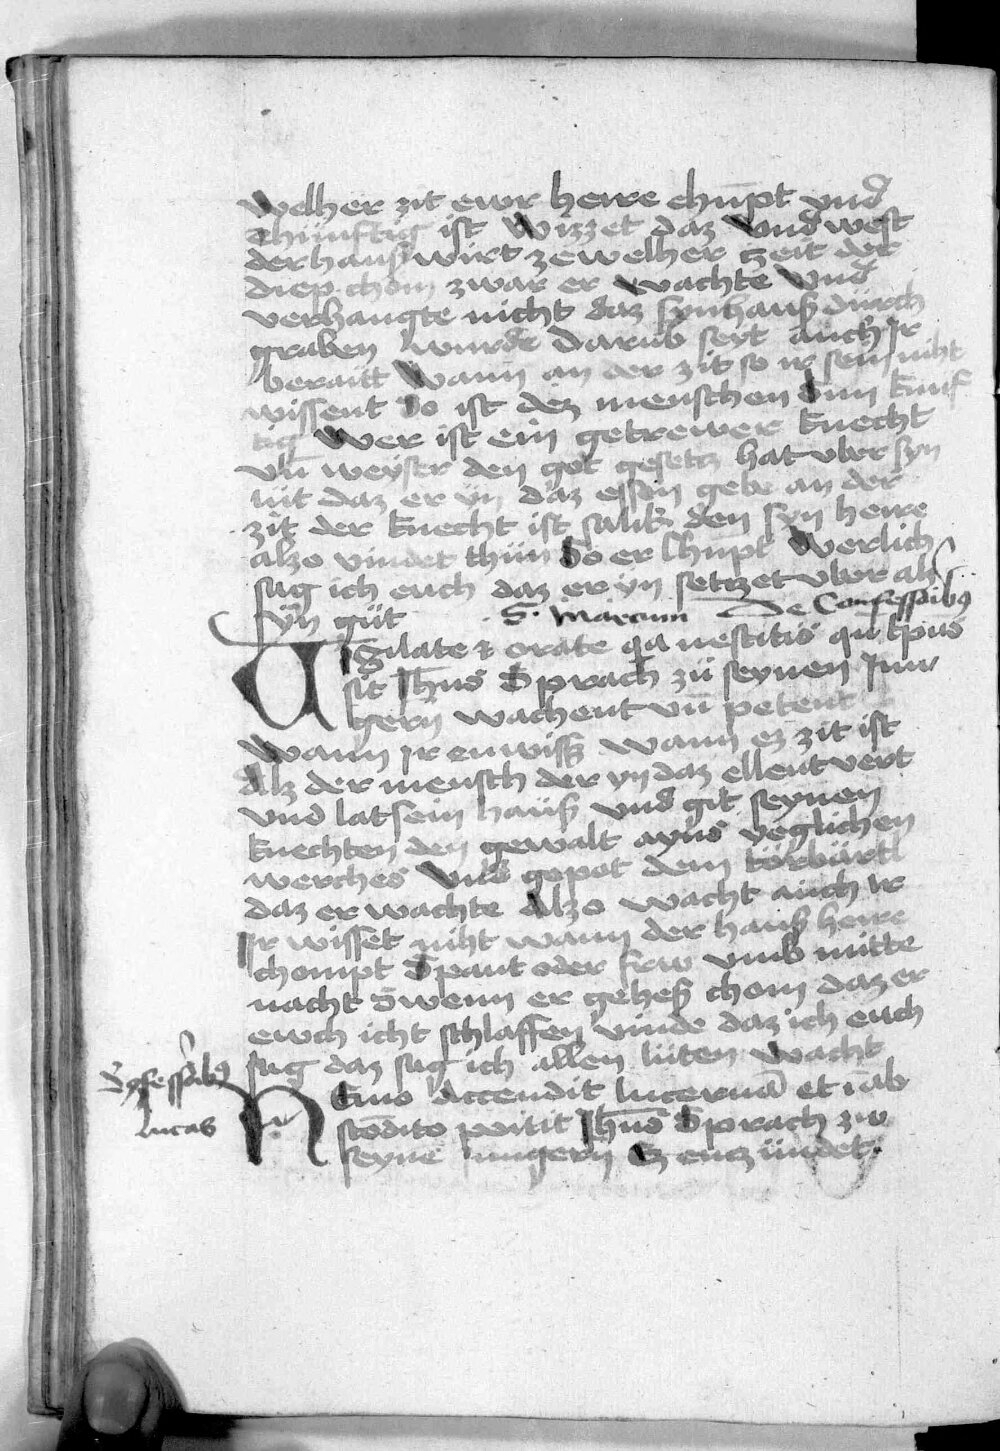 welher zit ewr herre chu̅pt vnd
chünftig ist Wizzet daz Vnd west
der hauß wirt zewelher zeit der
diep chom zwar er wachte Vnd
verhangte nicht daz syn hauß durch
graben wurde Darub seyt auch Ir
beraitt Wann an der zit so ir sein niht
wissent So ist dez menschen Sun kunf
tig Wer ist ein getrewer knecht
vn̅ weyser den got gesetzt hat vbr syn
nit daz er yn daz essen gebe an der
zit der knecht ist salik den syn herre
alzo vindet thün So er chu̅pt Werlich
sag ich euch daz er yn setzzet vbr als
syn güt S. Marcum De Confessoribus
Vigilate & orate qa nescitis qn̅ tp̅us
sit Ih̅us Sprach zü seynen Jun
gern wachent vn̅ petent
Wann ir enwiss wann ez zit ist
Alz der mensch der yn daz ellent vert
vnd lat sein hauß vnd git seynen
knechten den gewalt ayns yeglichen
werches Vnd gepot dem torbärtl
daz er wachte Alzo wacht auch ir
Ir wisset niht wann der hauß herre
chompt Spaut oder frw vmb mitte
nacht Swenn er geheß chom daz er
ewch icht schlaffen vinde daz ich euch
sag daz sag ich allen lüten Wacht
De 9fessoribus
Lucas
Nemo Accendit lucerna̅ et i̅ ab
sco̅dito po̅it Ih̅us Sprach zw
seyne Jungern Ez enzündet